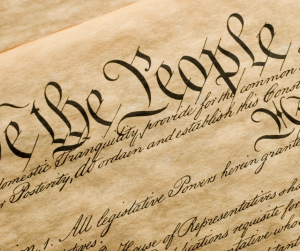 We the People
domestic Tranquility, provide for the common
Posterity, do ordain and establish this Const
1. All legislative Powers herein grante
House of Representatives